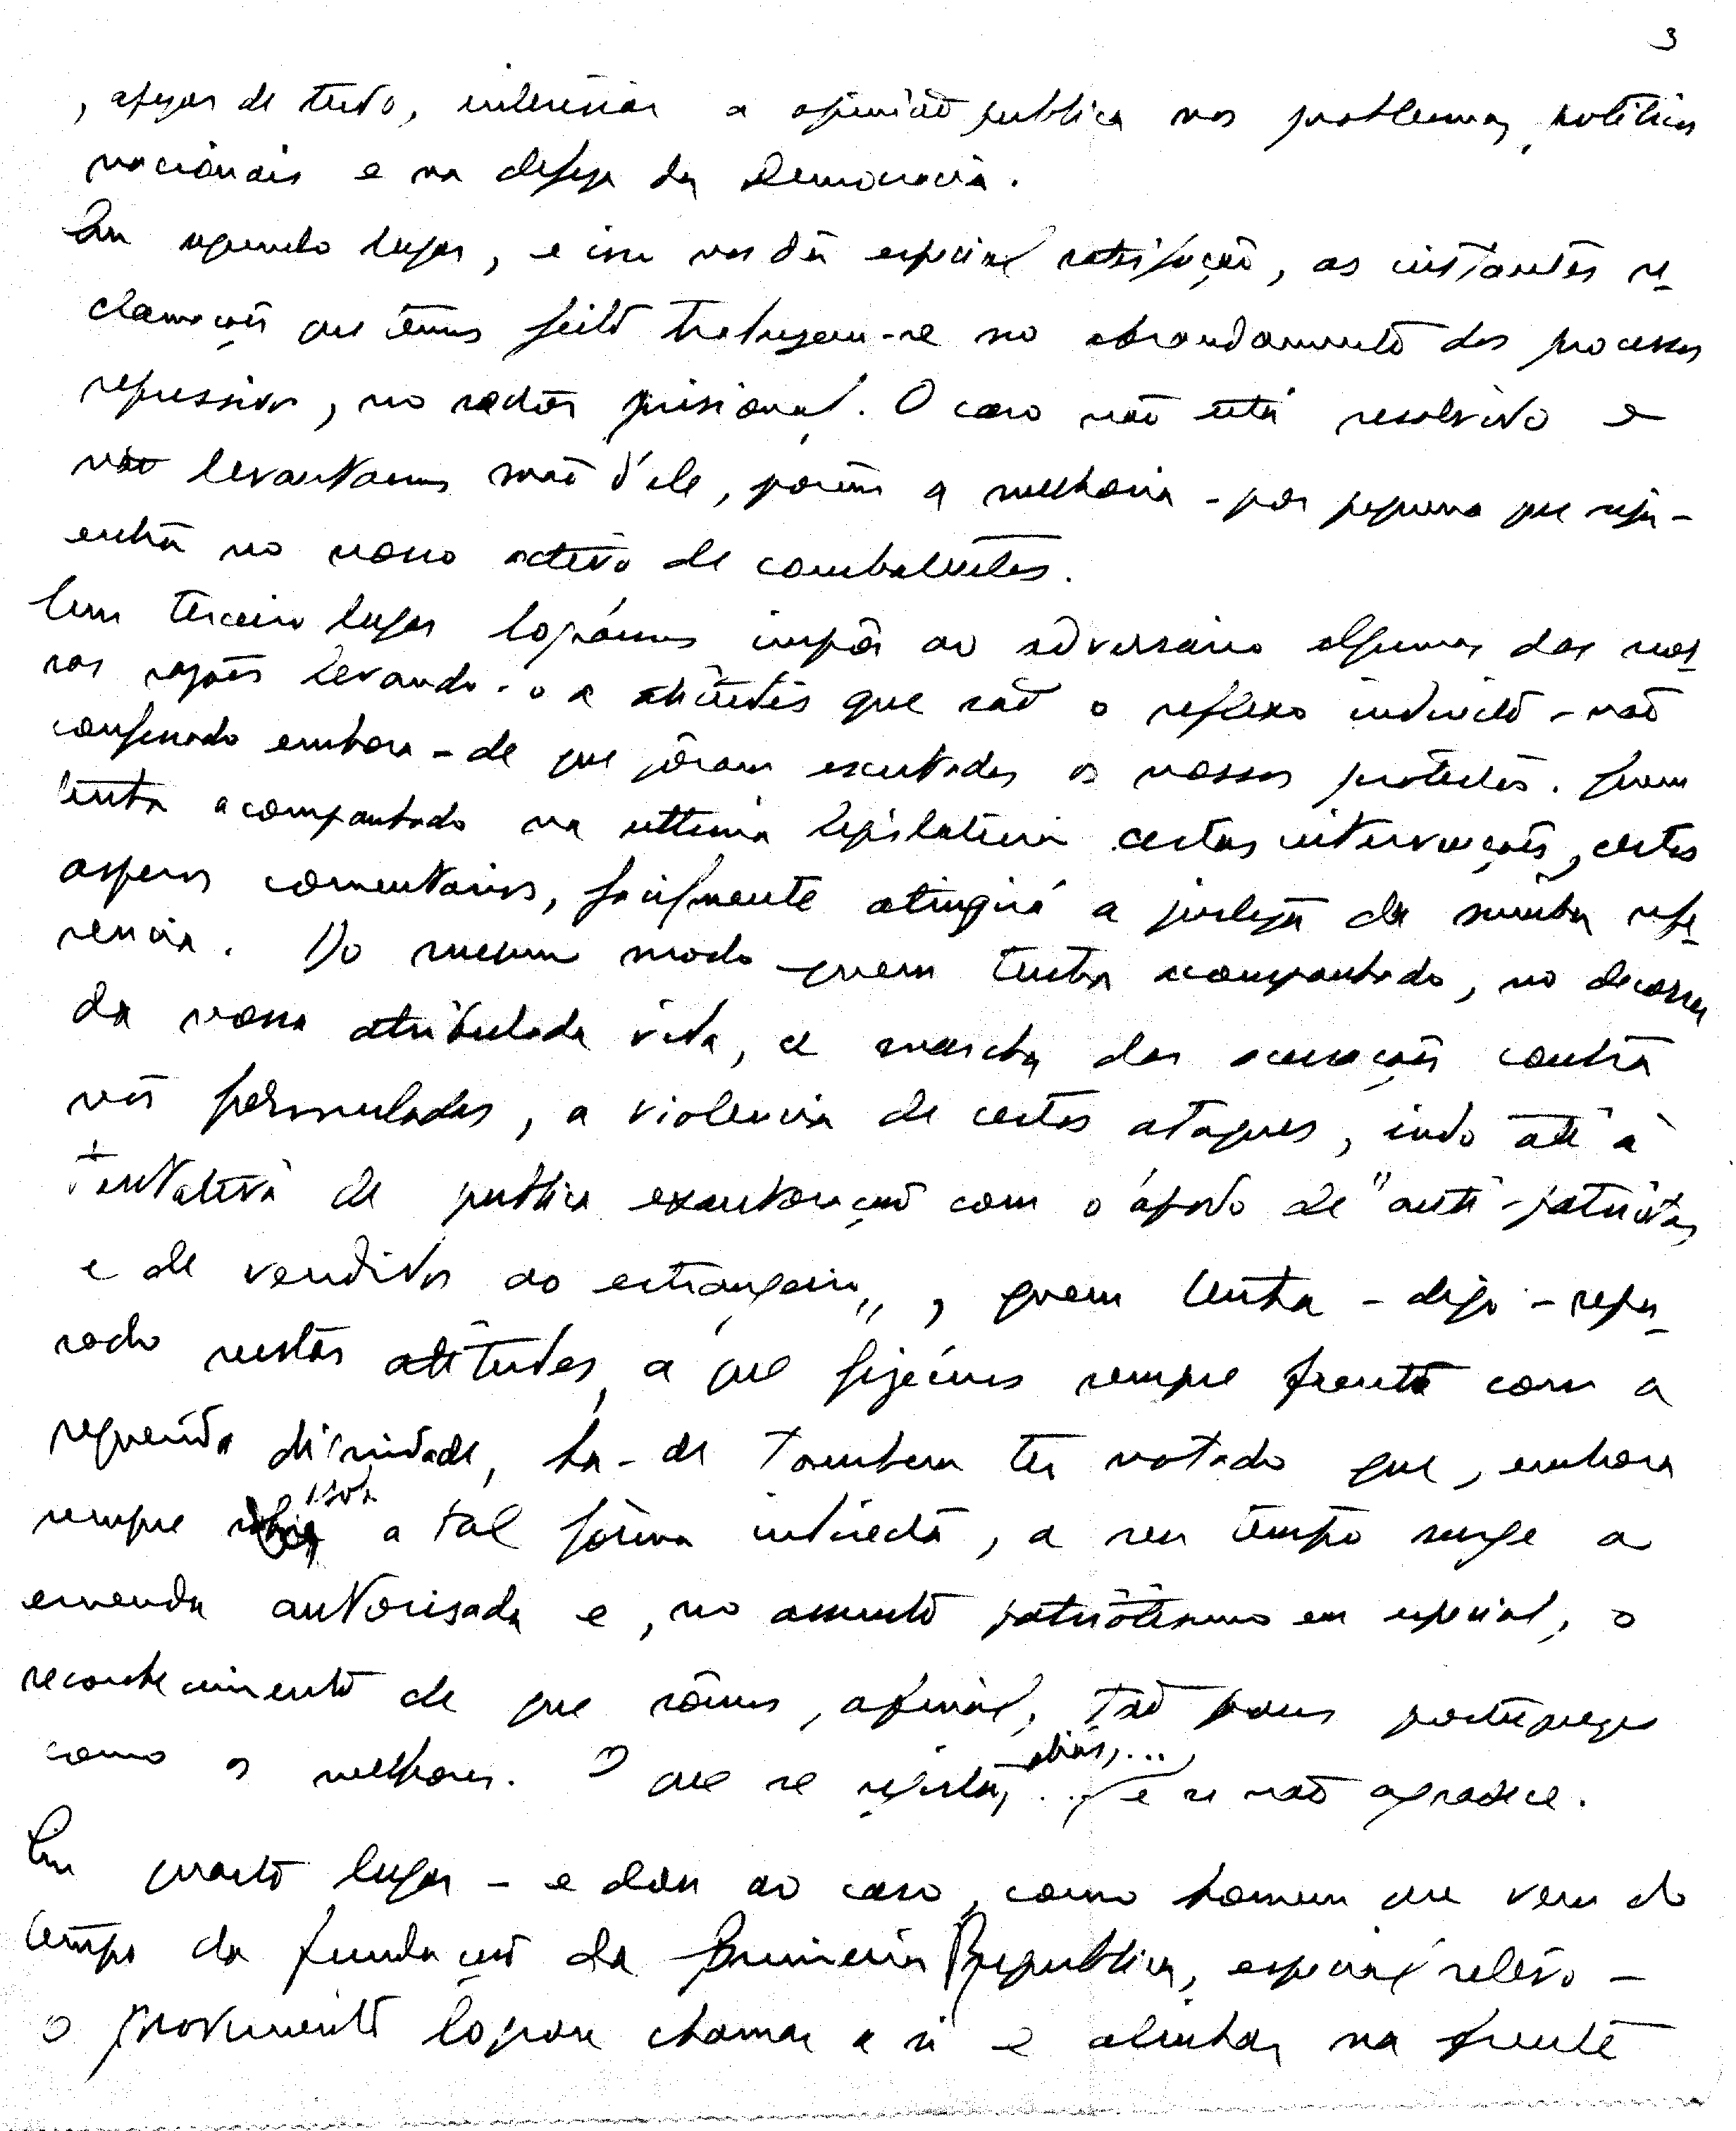 3
, apezar de tudo, interessar a opinião publica nos problemas politicos
nacionais e na defeza da Democracia.
Em segundo lugar, e isso nos dá especial satisfação, as instantes re-
clamações que temos feito traduzem-se no abrandamento dos processos
repressivos, no sector prisional. O caso não está resolvido e
não levantamos mão d'ele, porém a melhoria - por pequena que seja -
entra no nosso activo de combatentes.
Em terceiro lugar lográmos impôr ao adversário algumas das nos-
sas razões levando-o a atitudes que são o reflexo indirecto - não
confessado embora - de que fôram escutados os nossos protestos. Quem
tenha acompanhado na ultima legislatura certas intervenções, certos
asperos comentarios, facilmente atingirá a justeza da minha refe-
rencia. Do mesmo modo quem tenha acompanhado, no decorrer
da nossa atribulada vida, a marcha das acusações contra
nós formuladas, a violencia de certos ataques, indo até à
tentativa de publica exautoração com o ápodo de "anti-patriotas
e de vendidos ao estrangeiro", quem tenha - digo - repa-
rado nestas atitudes, a que fizémos sempre frente com a
requerida dignidade, ha-de tambem ter notado que, embora
sempre sob a tal fórma indirecta, a seu tempo surge a
emenda autorisada e, no assunto patriotismo em especial, o
reconhecimento de que sômos, afinal, tão bons portuguezes
como os melhores. O que se regista, aliás,... e se não agradece.
Em quarto lugar - e dou ao caso, como homem que vem do
tempo da fundação da Primeira Republica, especial relêvo -
o movimento logrou chamar a si e alinhar na frente